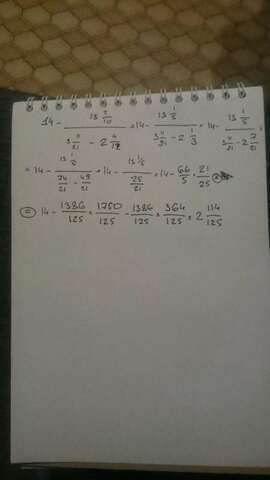 14 - 13 2/10 / (3 11/21 - 2 4/12) = 14 - 13 1/5 / (3 11/21 - 2 1/3) = 14 - 13 1/5 / (3 11/21 - 2 7/21) =
= 14 - 13 1/5 / (74/21 - 49/21) = 14 - 13 1/5 / (25/21) = 14 - 66/5 · 21/25 =
= 14 - 1386/125 = 1750/125 - 1386/125 = 364/125 = 2 114/125